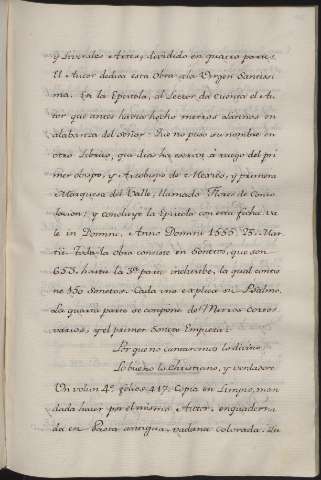 y Liverales Artes, dividido en quatro partes.
El Autor dedica esta Obra ala Virgen Santissi
ma. En la Epistola, al Lector da cuenta el Au
tor que antes havia hecho metros latinos en
alabanza del Señor: Que no puso su nombre en
otro Librito, que dias ha escrivi à ruego del pri
mer obispo, y Arzobispo de Mexico, y primera
Marquesa del Valle, llamado Flores de Conso
lacion; y concluye la Epistola con esta fecha: Va
le in Domino, Anno Domini 1555. 25. Mar
tii. Toda la obra consiste en Sonetos, que son
653. hasta la 3ª parte inclusibe, la qual contie
ne 150 Sonetos. Cada uno explica un Psalmo.
La quarta parte se compone de Metros cortos
varios, y el primer Soneto Empieza:
Por que no cantaremos lo divino
Lo bueno lo Christiano, y verdadero
Un volun 4º folios 417. Copia en Limpio, man
dada hacer por el mismo Autor, enquaderna
da en Pasta antigua, badana colorada. Su